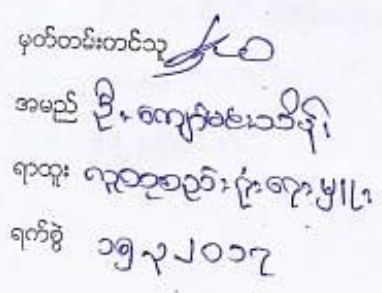 မှတ်တမ်းတင်သူ
အမည် ဦးကျော်မင်းသိန်း
ရာထူး လူထုစည်းရုံးရေးမှူး
ရက်စွဲ ၁၅.၃.၂၀၁၇